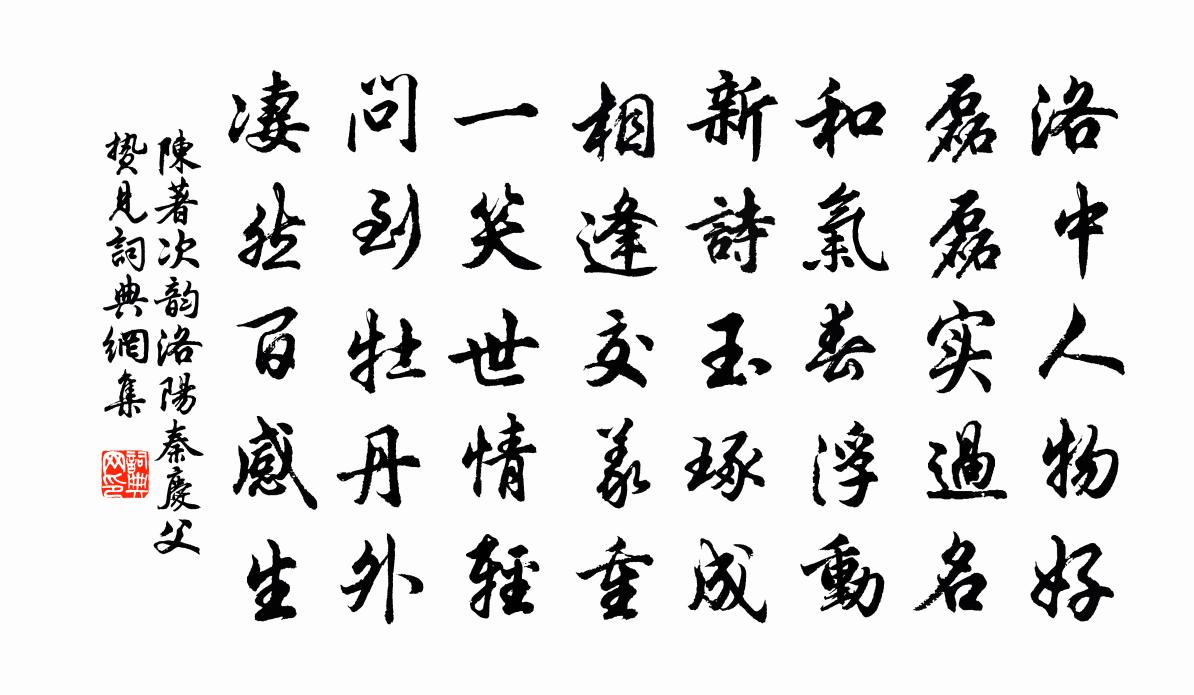 洛中人物好
磊磊实過名
和氣春浮動
新詩玉琢成
相逢交義重
一笑世情輕
問到牡丹外
凄然百感生
陳著次韵洛陽秦慶父
贄見詞典網集
詞典
网印